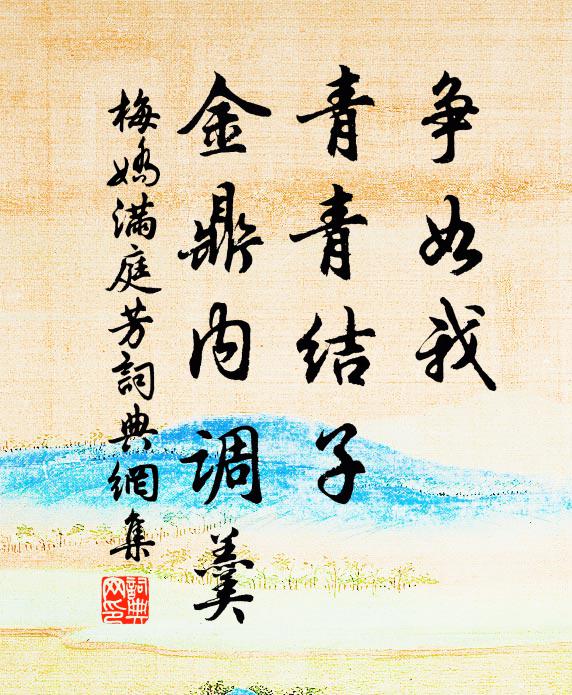 争如我
青青结子
金鼎内调羹
梅嬌滿庭芳詞典網集
詞典網印